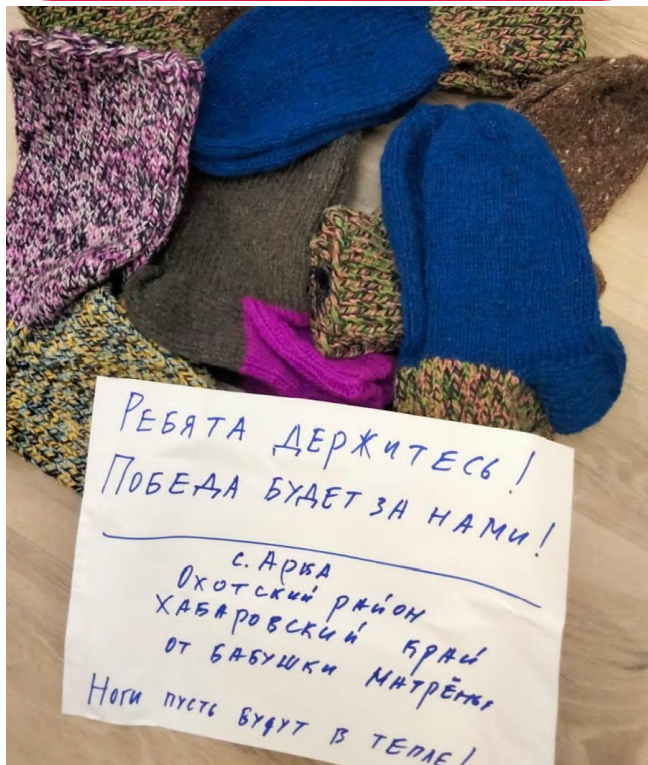 РЕБЯТА ДЕРЖИТЕСЬ!
ПОБЕДА БУДЕТ ЗА НАМИ!
с. АРКА
ОХОТСКИЙ РАЙОН
ХАБАРОВСКИЙ КРАЙ
ОТ БАБУШКИ МАТРЁНЫ
НОГИ ПУСТЬ БУДУТ В ТЕПЛЕ!